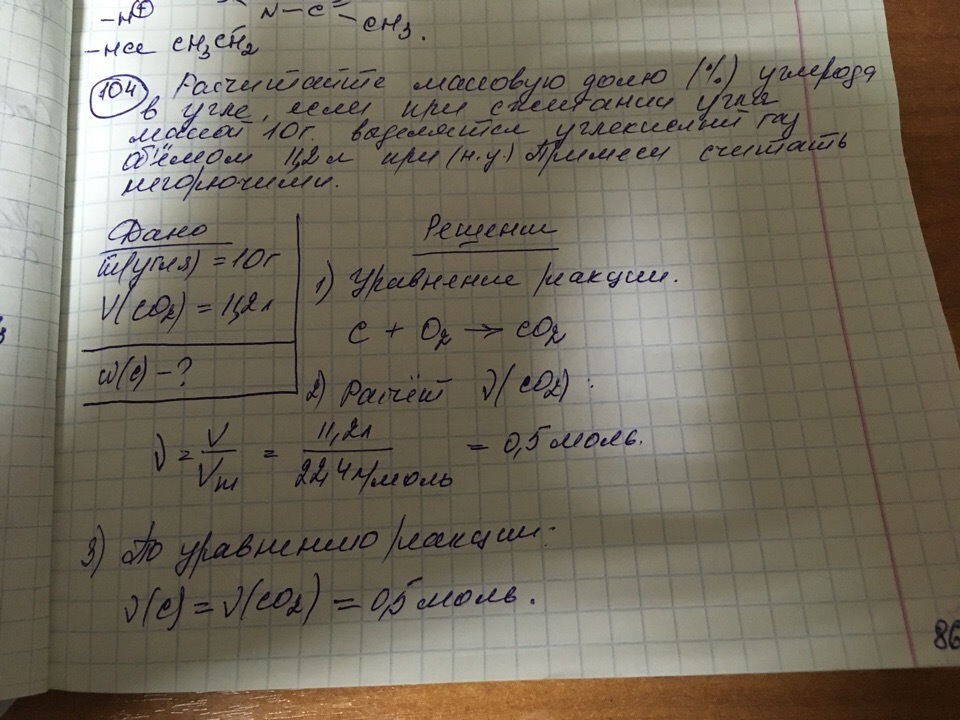 -H⊕ N-C-CH3.
-HCl CH3CH2
104 Расчитайте массовую долю (%) углерода
в угле, если при сжигании угля
массой 10г. выделяется углекислый газ
объёмом 11,2л при (н.у.) Примеси считать
негорючими.
Дано
m(угля) = 10г
V(CO2) = 11,2л
ω(C) - ?
Решение
1) Уравнение реакции.
C + O2 → CO2
2) Расчёт ν(CO2):
ν = V/Vm = 11,2л/22,4л/моль = 0,5 моль.
3) По уравнению реакции:
ν(C) = ν(CO2) = 0,5 моль.
86